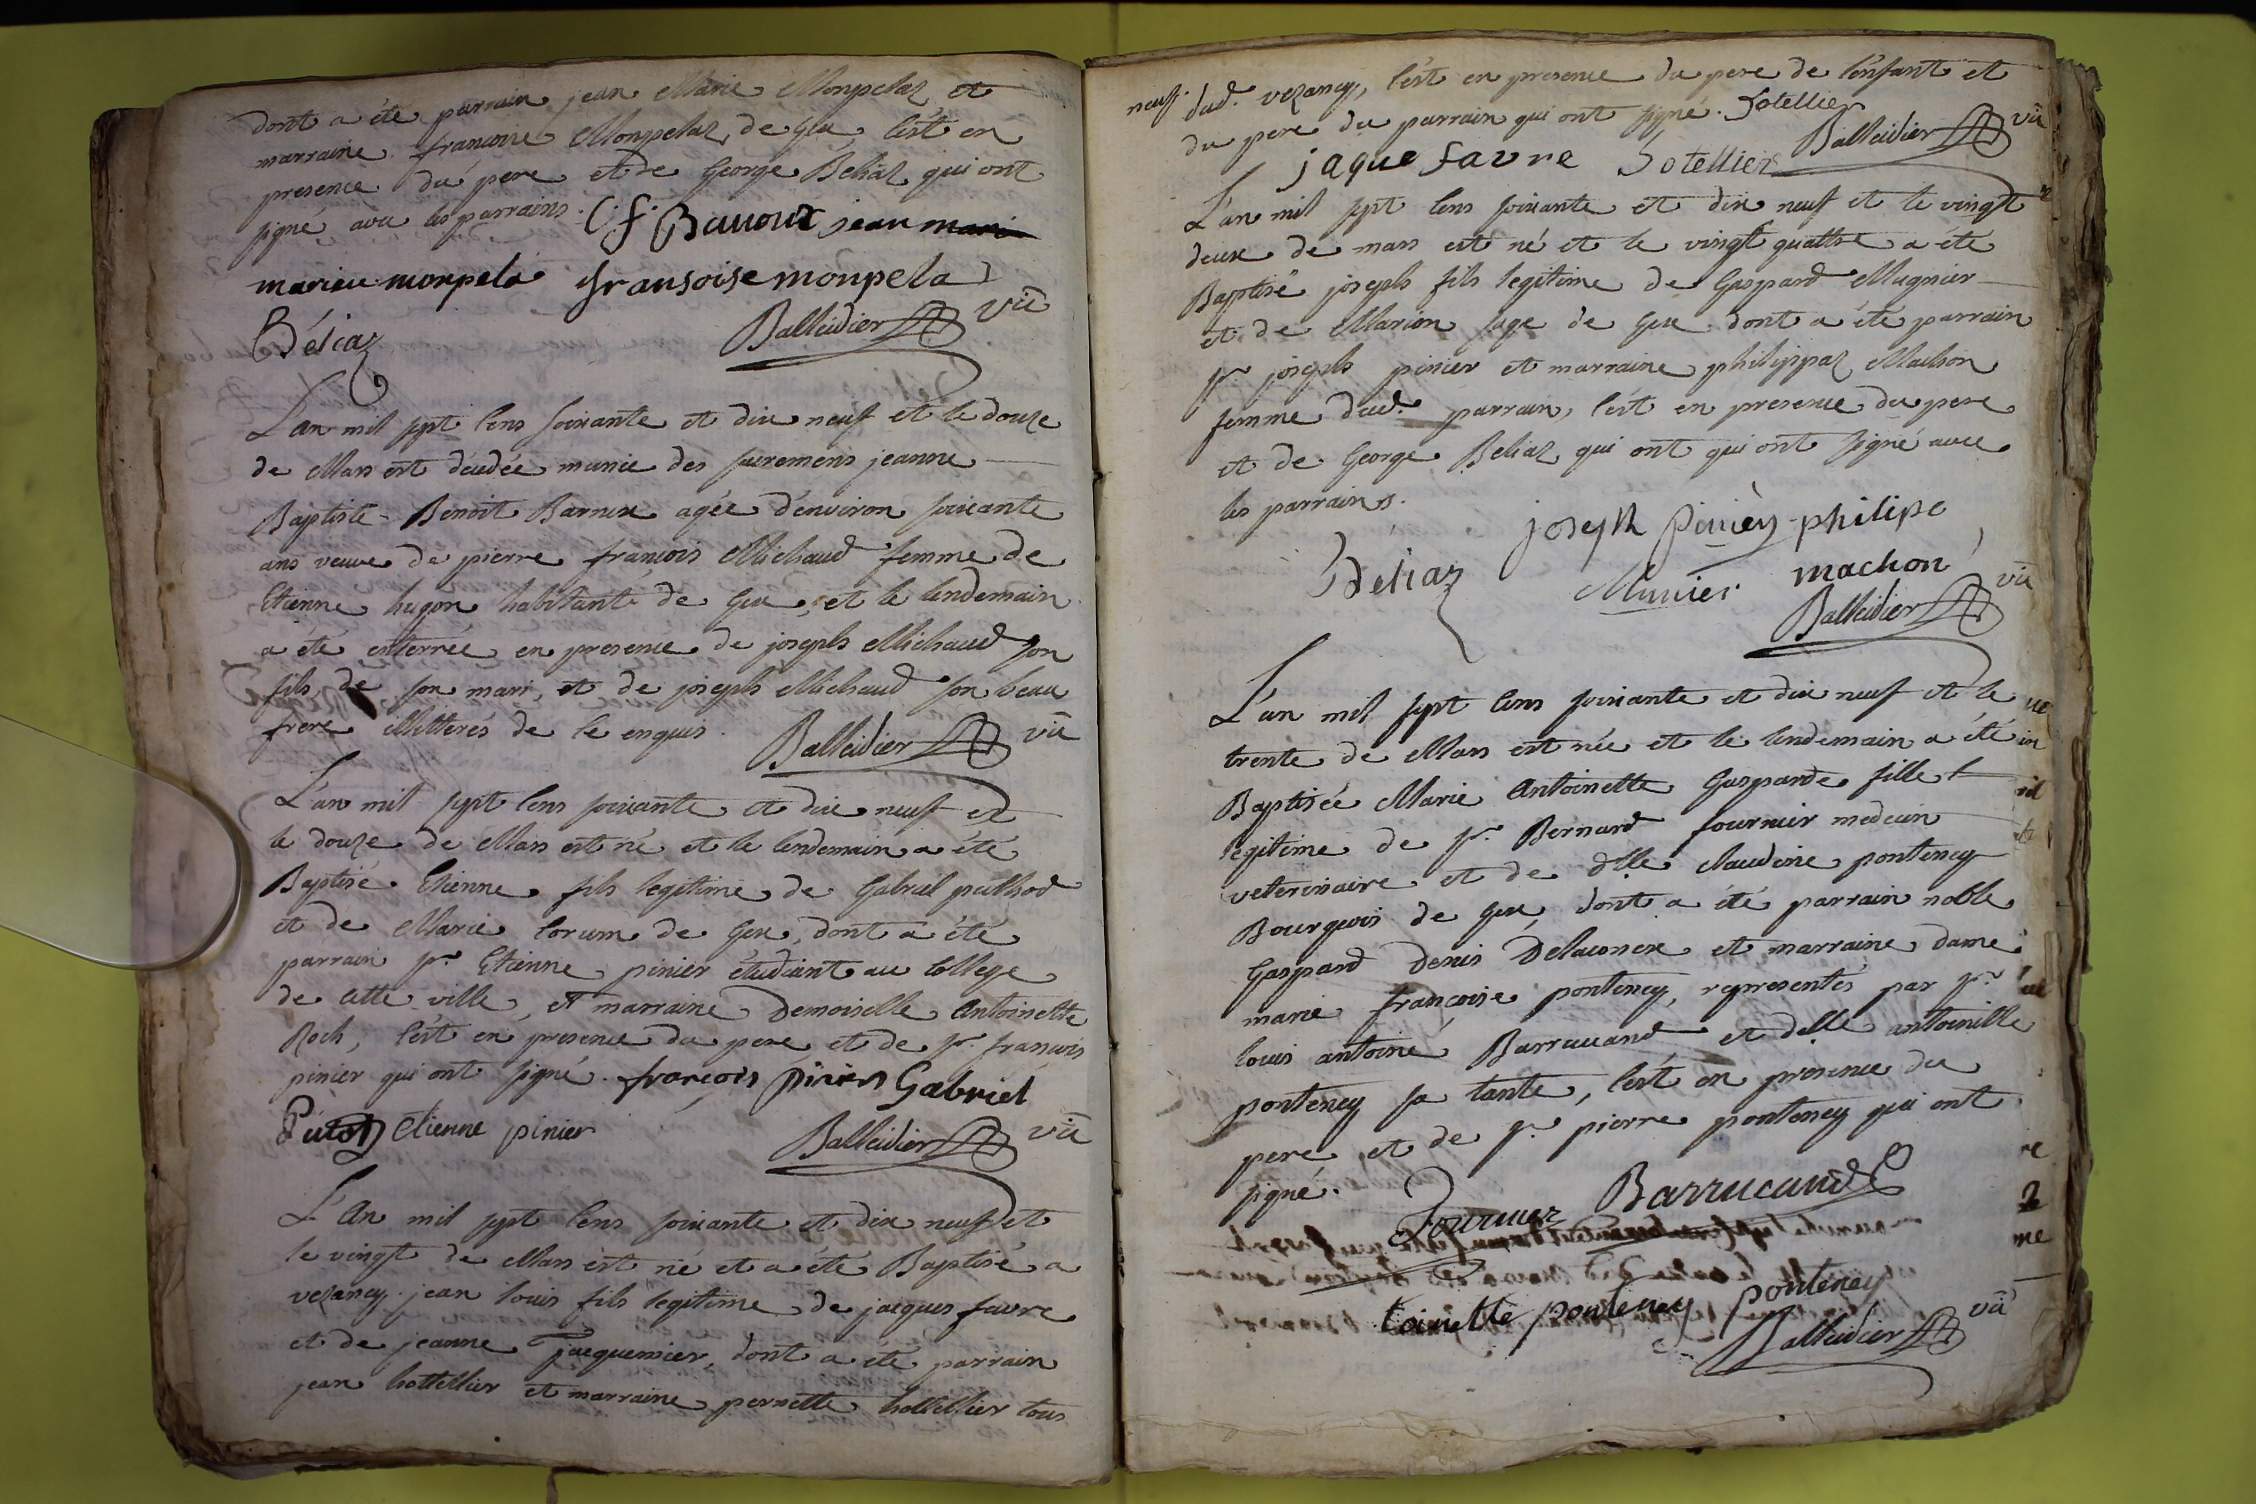 dont a été parrain jean Marie Monpelaz et
marraine françoise Monpelaz de Gex, c'est en
presence du pere et de George Béliaz qui ont
signé avec les parrains. C: f: Bavoux jean mari
marieu monpela fransoise monpela
Béliaz Balleidier vic
L'an mil sept cens soixante et dix neuf et le douze
de Mars est décédée munie des sacremens jeanne
Baptiste Benoit Barnux agée d'environ soixante
ans veuve de pierre françois Michaud femme de
Etienne hugon habitante de Gex, et le lendemain
a été enterrée en presence de joseph Michaud son
fils de son mari, et de joseph Michaud son beau
frere illitterés de ce enquis. Balleidier vic
L'an mil sept cens soixante et dix neuf et
le douze de Mars est né et le lendemain a été
Baptisé Etienne fils legitime de Gabriel puthod
et de Marie Corum de Gex, dont a été
parrain sr. Etienne pinier étudiant au College
de cette ville, et marraine Demoiselle Antoinette
Roch, c'est en presence du pere et de sr. françois
pinier qui ont signé. françois pinier Gabriel
Putod Etienne pinier Balleidier vic
L'An mil sept cens soixante et dix neuf et
le vingt de Mars est né et a été Baptisé a
vezancy jean louis fils legitime de jacques favre
et de jeanne Jacquemier, dont a été parrain
jean hottellier et marraine pernette hottellier tous
neuf. dud. vezancy, c'est en presence du pere de l'enfant et
du pere du parrain qui ont signé. Sotellier
jaque favre Sotellier Balleidier vic
L'an mil sept cens soixante et dix neuf et le vingt
deux de mars est né et le vingt quattre a été
Baptisé joseph fils legitime de Gaspard Mugnier
et de Marion sage de Gex dont a été parrain
sr. joseph pinier et marraine philippaz Machon
femme dud. parrain, c'est en presence du pere
et de George Beliaz qui ont qui ont signé avec
les parrains.
joseph pinier philipe
Béliaz Munier machon
Balleidier vic
L'an mil sept cens soixante et dix neuf et le
trente de Mars est née et le lendemain a été
Baptisée Marie Antoinette Gasparde fille
legitime de sr. Bernard fournier medecin
veterinaire et de dlle claudine ponteney
Bourgeois de Gex, dont a été parrain noble
Gaspard Denis Delaconex et marraine dame
marie françoise ponteney, representés par sr.
louis antoine Barrucand et delle antoinille
ponteney sa tante, c'est en presence du
pere, et de sr. pierre ponteney qui ont
signé.
Fournier Barrucand
toinette ponteney ponteney
Balleidier vic